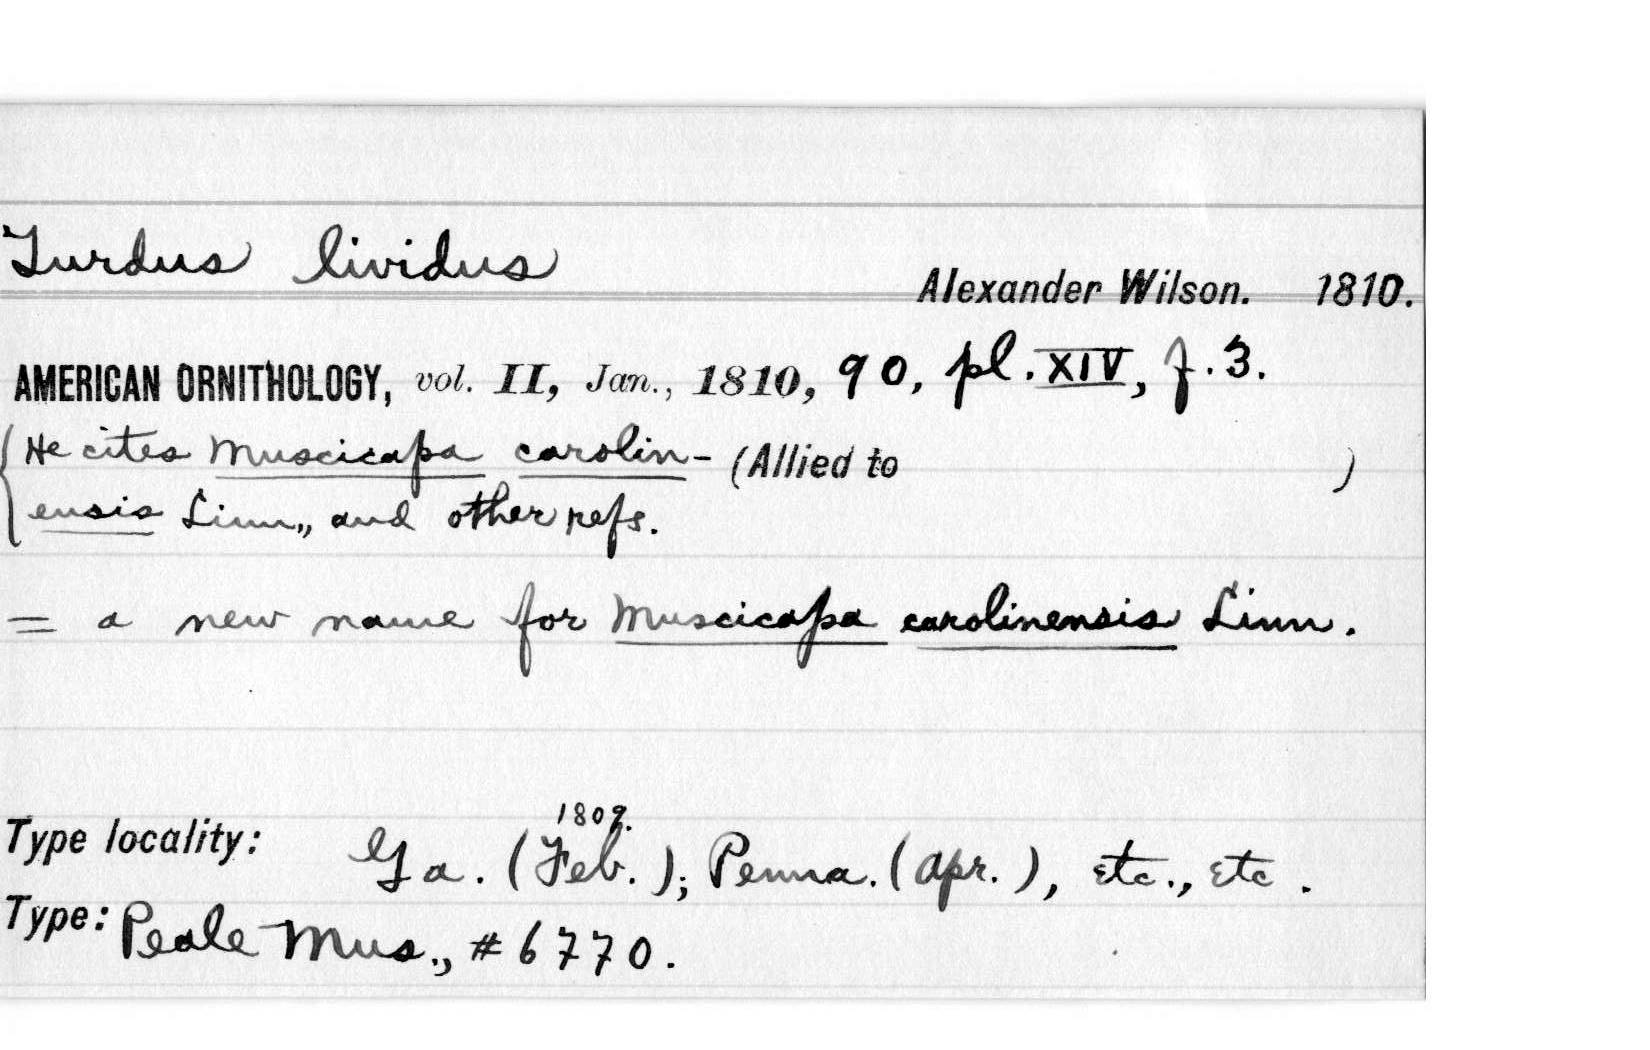 Turdus lividus
Alexander Wilson. 1810.
AMERICAN ORNITHOLOGY, vol. II, Jan., 1810, 90, pl. XIV, f. 3.
He cites Muscicapa carolin- (Allied to )
ensis Linn., and other refs.
= a new name for Muscicapa carolinensis Linn.
1809.
Type locality: Ga. (Feb.); Penna. (Apr.), etc., etc.
Type: Peale Mus., # 6770.